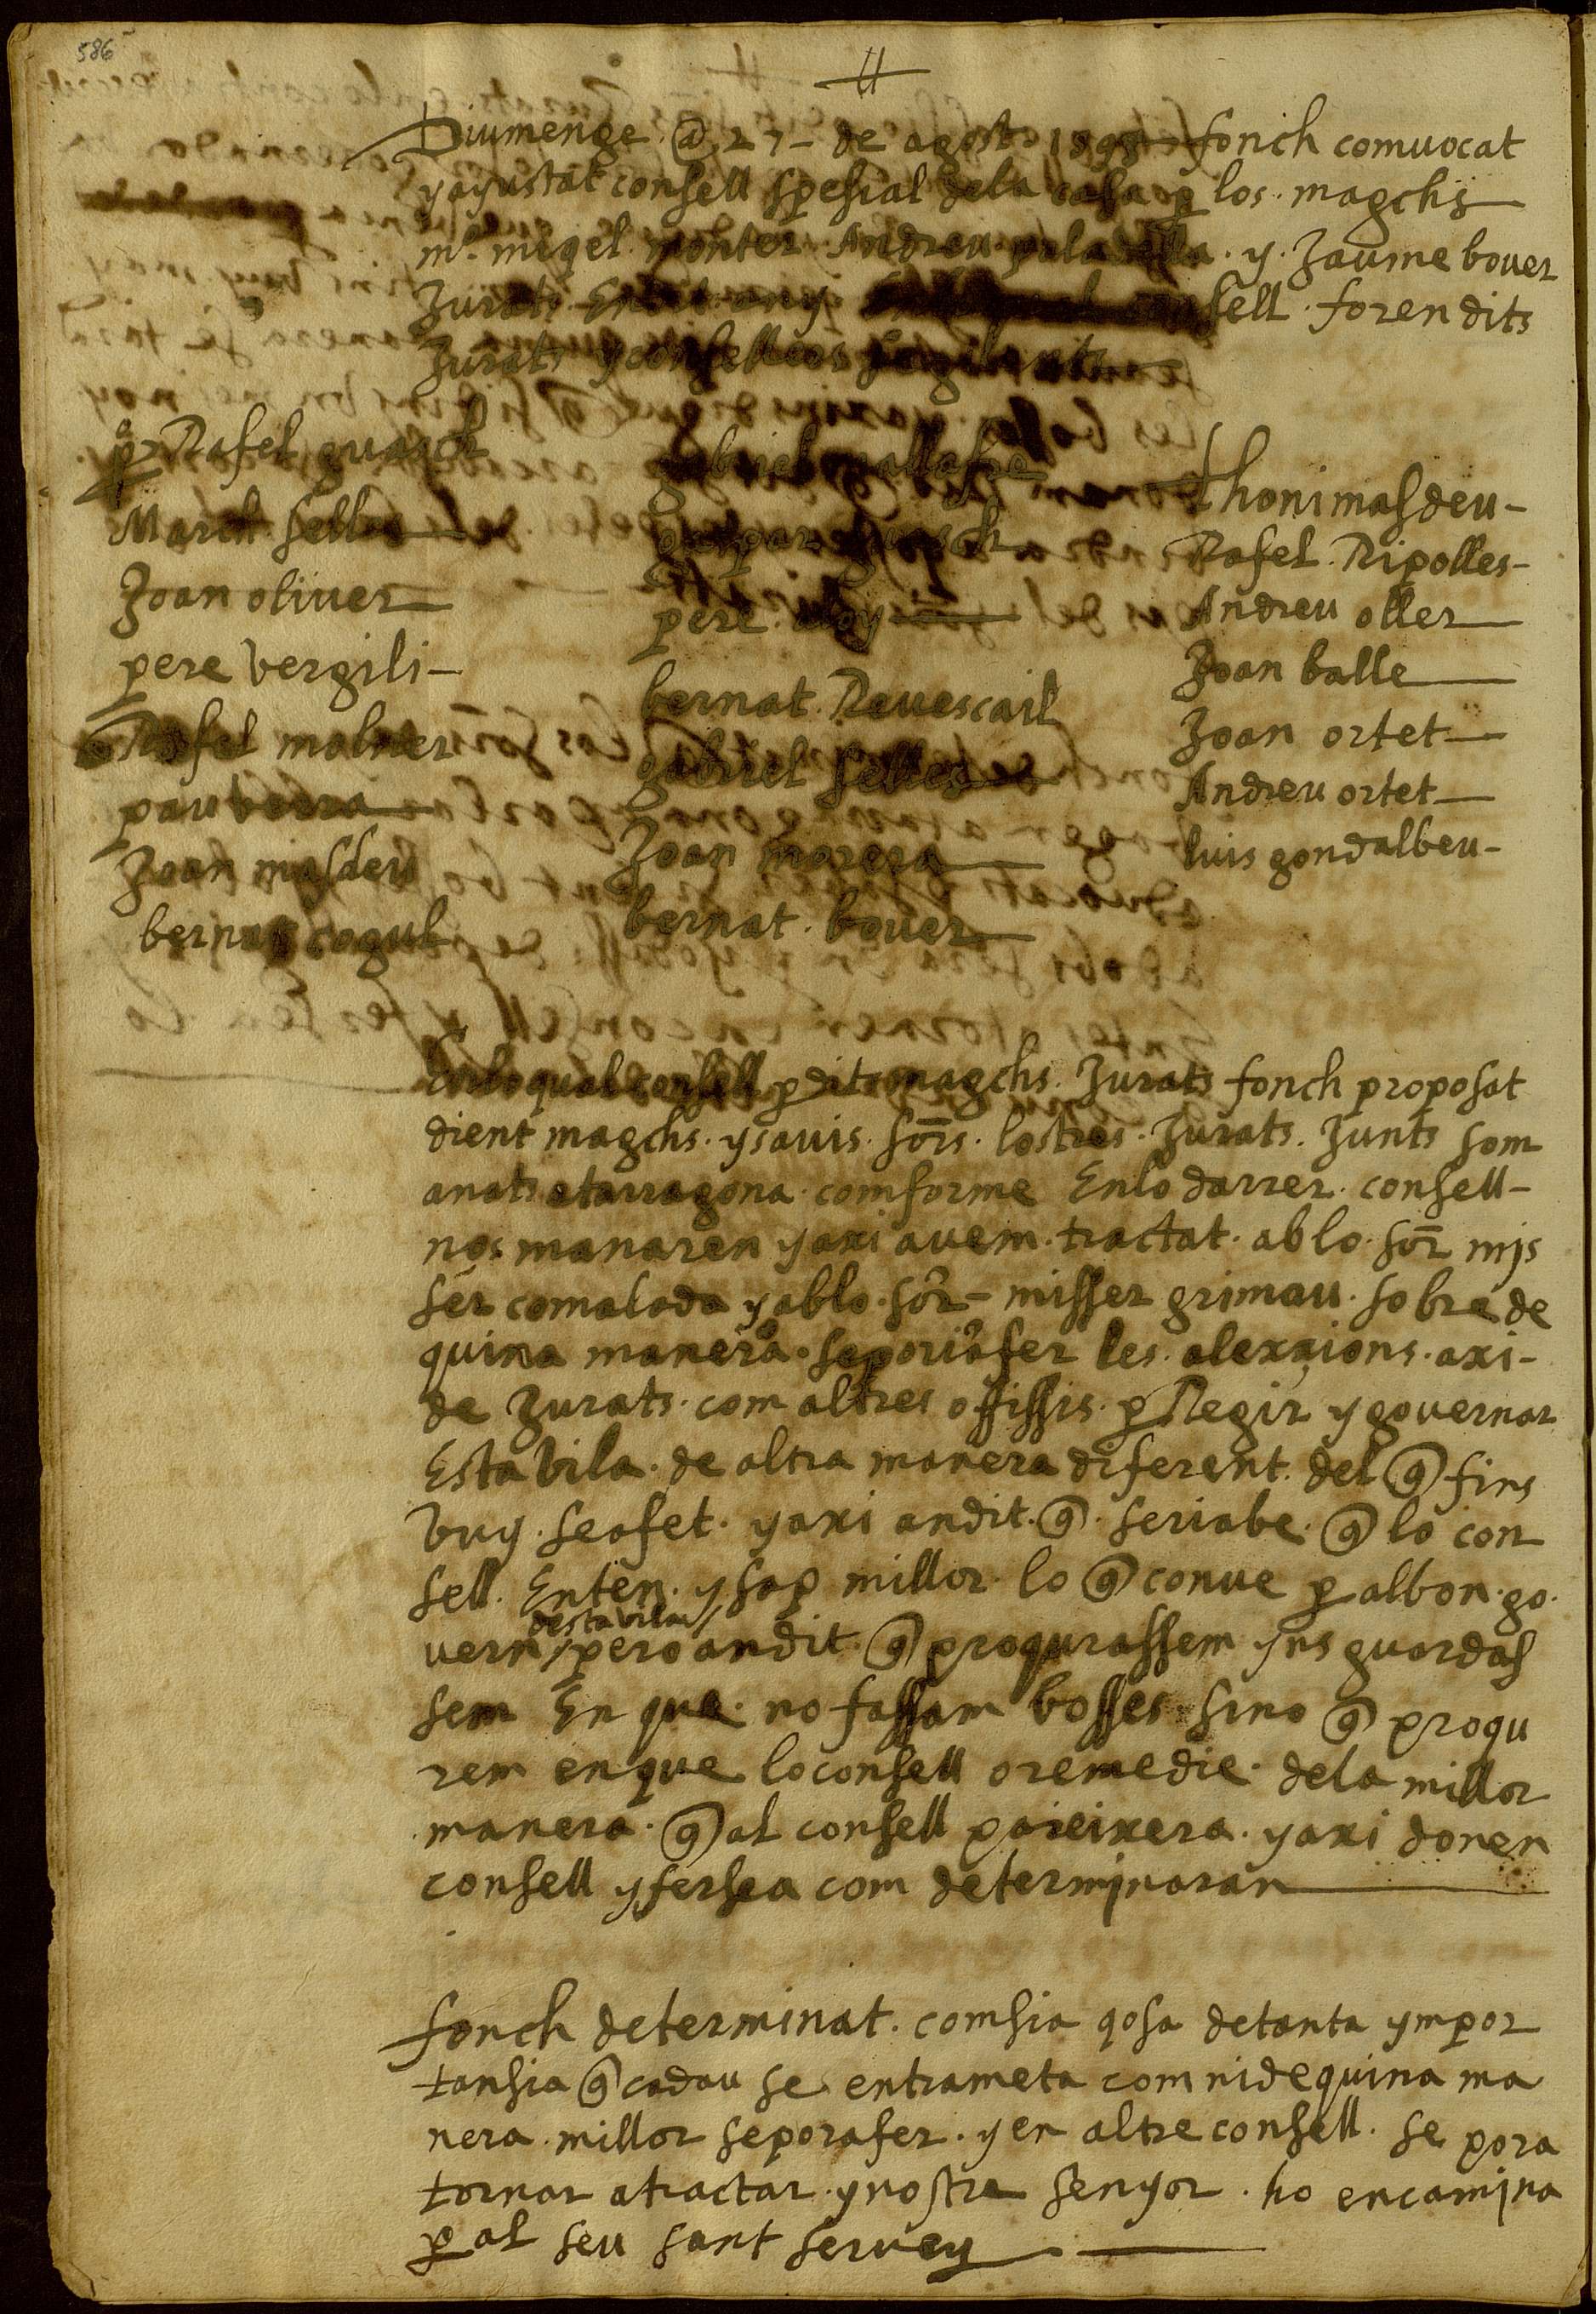 586
Diumenge @ 27 - de agost 1598 fonch comuocat
y ayustat consell spesial dela casa p los. magchs
mº. miqel. monter. Andreu. paladella. y. Jaume bouer
Jurats En lo t any sell. foren dits
Jurats y consellers
p Rafel guasch
March Selles
Joan oliuer
pere vergili -
Rafel moliner
pau
Joan masdeu
bernat cogul
gabriel
gaspar guasch
pere. aloy
bernat. Reuescail
gabriel selles
Joan morera
bernat. bouer
thoni masdeu -
Rafel. Ripolles -
Andreu oller
Joan balle
Joan ortet
Andreu ortet
luis gondalbeu -
Enlo qual consell p dits magchs. Jurats fonch proposat
dient magchs. y sauis. sors. los tres. Jurats. Junts som
anats a tarragona. comforme En lo darrer. consell -
nos manaren y axi auem. tractat. ab lo. sor mjs
ser comalada y ab lo. sor - misser grimau. sobre de
quina manera. se poria fer les. alexxions. axi -
de Jurats. com altres offissis. p Regir y gouernar
Esta vila. de altra manera diferent. del q fins
vuy. se a fet. y axi an dit. q. seria be. q lo con
sell. Enten. y sap millor. lo q conue p al bon. go.
desta vila
uern / pero an dit. q proqurassem yns guardas
sem En que. no fassam bosses. sino q proqu
rem en que lo consell o remedie. dela millor
manera. q al consell pareixera. y axi donen
consell y fersea com determjnaran
fonch determinat. com sia qosa de tanta ympor
tansia q cadau se entrameta com ni de quina ma
nera. millor se pora fer. y en altre consell. se pora
tornar a tractar. y nostre senyor. ho encamjna
p al seu sant seruey